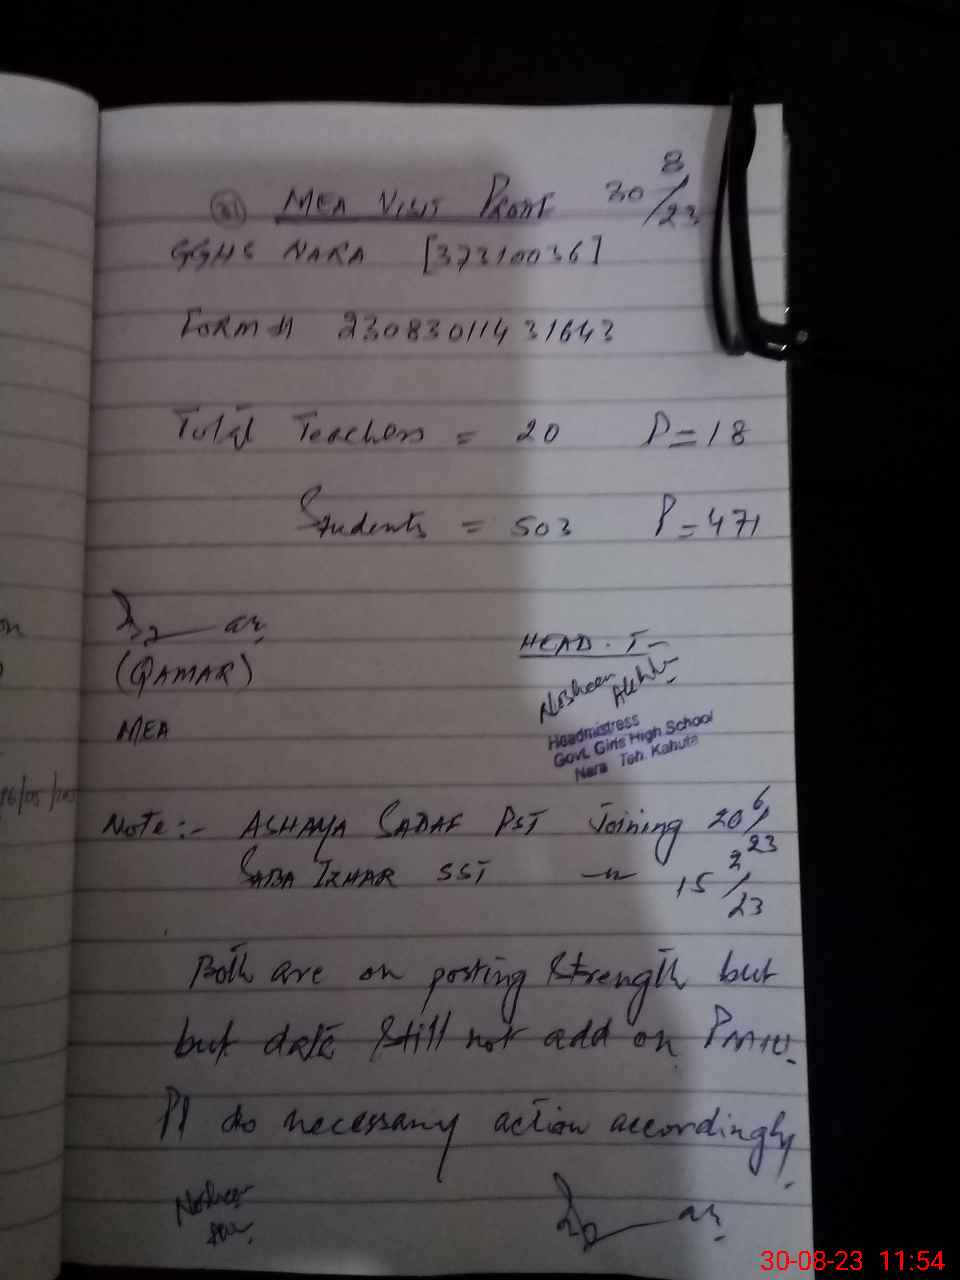 (31) MEA Visit Proof 30/8/23
GGHS NARA [37310036]
Form # 23083011431643
Total Teachers = 20 P=18
Students = 503 P=471
(QAMAR)
MEA
HEAD. T-
Nosheen Akhtar
Headmistress
Govt. Girls High School
Nara Teh. Kahuta
Note:- ASHAYA SADAF PST Joining 20/6/23
SABA IZHAR SST -"- 15/2/23
Both are on posting strength but
but date still not add on PMIU.
Pl do necessary action accordingly.
Nosheen
30-08-23 11:54